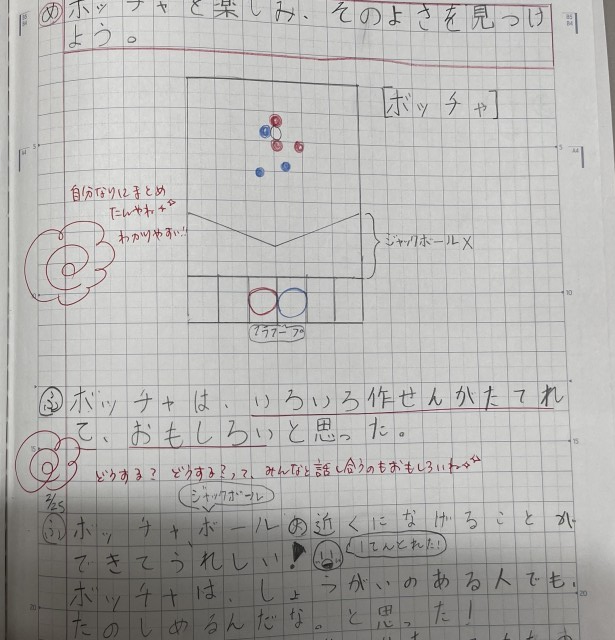 め ボッチャを楽しみ、そのよさを見つけ
よう。
[ボッチャ]
自分なりにまとめ
たんやね
わかりやすい!!
ジャックボール×
ふ ボッチャは、いろいろ作せんがたてれ
て、おもしろいと思った。
どうする? どうする?って、みんなと話し合うのもおもしろいね
2/25
ジャックボール
ふ ボッチャ、ボールお近くになげることが
できてうれしい! 1てんとれた!
ボッチャは、しょうがいのある人でも、
たのしめるんだな。と思った!